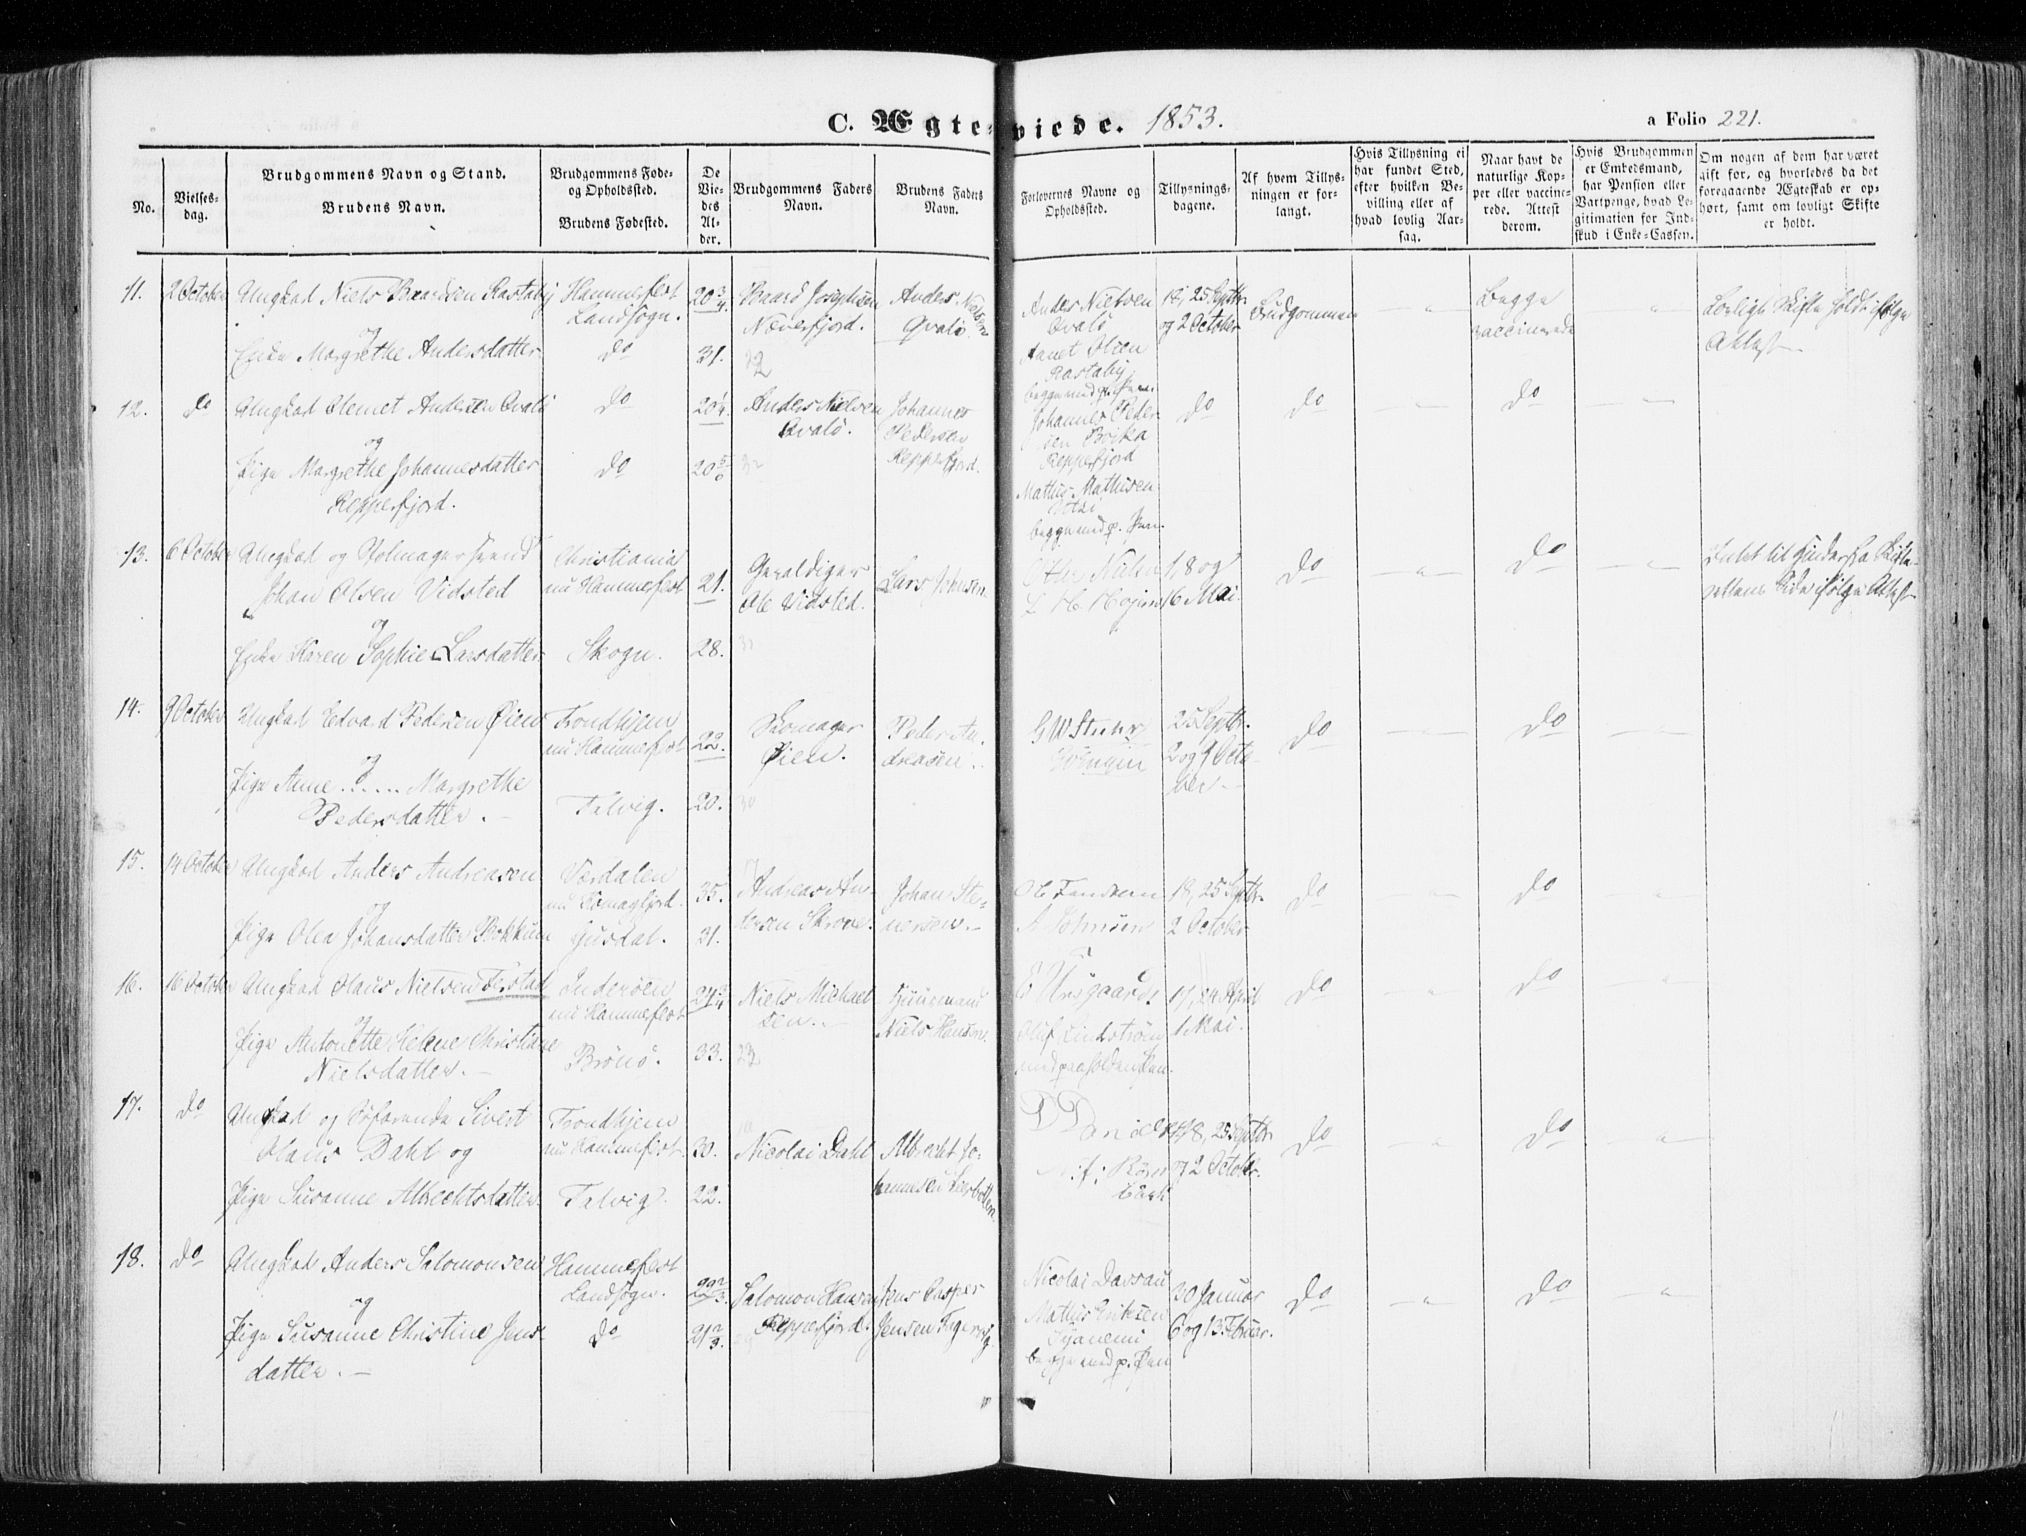 C. Ægteviede. 1853.
a Folio 221.
No.
Vielses-
dag.
Brudgommens Navn og Stand.
Brudens Navn.
Brudgommens Føde-
og Opholdssted.
Brudens Fødested.
De
Vie-
des
Al-
der.
Brudgommens Faders
Navn.
Brudens Faders
Navn.
Forlovernes Navne og
Opholdssted.
Tillysnings-
dagene.
Af hvem Tillys-
ningen er for-
langt.
Hvis Tillysning ei
har fundet Sted,
efter hvilken Be-
villing eller af
hvad lovlig Aar-
sag.
Naar havt de
naturlige Kop-
per eller vaccine-
rede. Attest
derom.
Hvis Brudgommen
er Embedsmand,
har Pension eller
Vartpenge, hvad Le-
gitimation for Ind-
skud i Enke-Cassen.
Om nogen af dem har været
gift før, og hvorledes da det
foregaaende Ægteskab er op-
hørt, samt om lovligt Skifte
er holdt.
11.
2 October
Ungkarl Niels Baardsen Rastaby
og
Enke Margrethe Andersdatter
Hammerfest
Landsogn.
do
20 3/4
31.
Baard Josephsen
Næverfjord.
Anders Nielsen
Qvalö
Anders Nielsen
Qvalö
Olsen
Rastaby
begge med p. Pen.
18, 25 Septbr
og 2 October
Brudgommen
Begge
vaccinerede
Lovligt Skifte holdt ifølge
Attest
12.
do
Ungkarl Clemet Andersen Qvalö
og
Pige Margrethe Johannesdatter
Reppefjord.
do
do
20 1/4
20 5/6
Anders Nielsen
Qvalö.
Johannes
Pedersen
Reppefjord.
Johannes Peder-
sen
Reppefjord
Mathis Mathisen
begge med p. Pen.
do
do
do
13.
6 October
Ungkarl og
Johan Olsen Vidsted
og
Enke Karen Sophie Larsdatter
Christiania
nu Hammerfest
Skogn.
21.
28.
Ole Vidsted.
Lars Johnsen.
1, 8 og
16 Mai.
do
do
Intet til Hinder fra Skifte-
rettens Side ifølge Attest
14.
9 October
Ungkarl Edvard Pedersen Øien
og
Pige Anne ...... Margrethe
Pedersdatter.
Trondhjem
nu Hammerfest
Talvig.
22.
20.
Skomager
Øien.
Peder An-
dreasen.
G W Stuhr
25 Septbr.
2 og 9 Octo-
ber
do
do
15.
14 October
Ungkarl Anders Andreasen
og
Pige Olea Johansdatter Bakkum
Værdalen
nu Komagfjord.
35.
31.
Andreas An-
dersen Skrove.
Johan Ste-
nersen.
A Johnsen
18, 25 Septbr.
2 October
do
do
16.
16 October
Ungkarl Olaus Nielsen Fisstad
og
Pige Antonette Helene Christiane
Nielsdatter.
Inderöen
nu Hammerfest
Brönö.
24 3/4
33.
Niels Michael-
sen.
Niels Hansen.
Oluf Lindström
17, 24 April
1 Mai.
do
do
17.
do
Ungkarl og Söfarende Sivert
Olaus Dahl og
Pige Susanne Albrechtsdatter
Trondhjem
nu Hammerfest
Talvig.
30.
22.
Nicolai Dahl
Albrecht Jo-
hannesen Leerbotten.
18, 25 Septbr
og 2 October.
do
do
18.
do
Ungkarl Anders Salomonsen
og
Pige Susanne Christine Jens-
datter.
Hammerfest
Landsogn.
do
21 2/3
Salomon Hansen
Reppefjord.
Jens Casper
Jensen
Nicolai Davsau
Mathis Eriksen
begge med p. Pen
30 Januar
6 og 13 Februar.
do
do